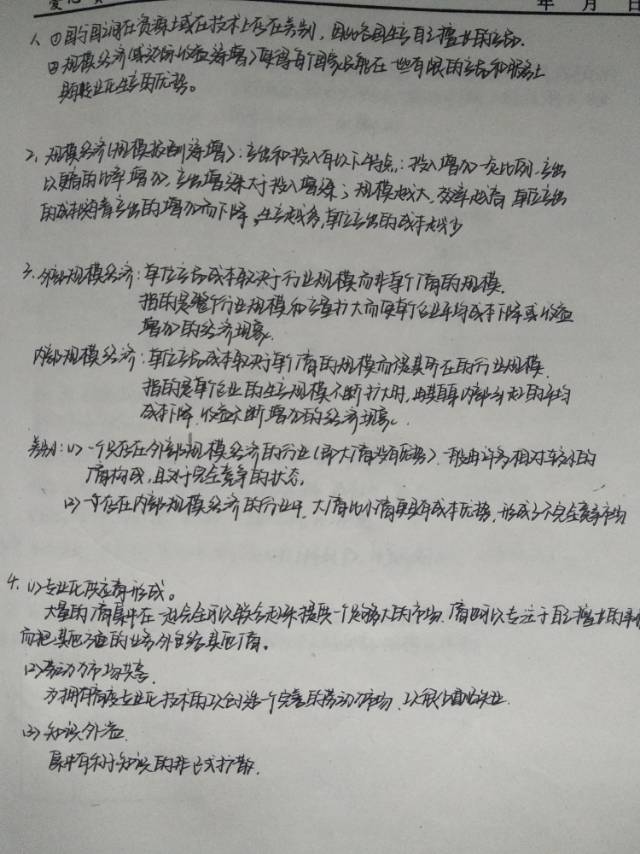 年 月 日
1、①国与国间在资源上或在技术上存在差别，因此各国生产自己擅长的产品.
②规模经济(或边际收益递增)使得每个国家只能在一些有限的产品和服务上
具有专业化生产的优势。
2、规模经济(规模报酬递增)：产出和投入有以下特点：投入增加一定比例,产出
以更高的比率增加,产出增速大于投入增速；规模越大,效率越高,单位产出
的成本随着产出的增加而下降。生产越多,单位产出的成本越少
3、外部规模经济：单位产品成本取决于行业规模而非单个厂商的规模.
指的是整个行业规模和产量扩大而使单个企业平均成本下降或收益
增加的经济现象.
内部规模经济：单位产品成本取决于单个厂商的规模而非其所在的行业规模.
指的是单个企业的生产规模不断扩大时,由其自身内部引起的平均
成本下降,收益不断增加的经济现象.
差别：(1)一个只存在外部规模经济的行业(即大厂商没有优势)一般由许多相对较小的
厂商构成,且处于完全竞争的状态.
(2)一个存在内部规模经济的行业中,大厂商比小厂商更具有成本优势,形成了不完全竞争市场
4、(1)专业化供应商形成。
大量的厂商集中在一起完全可以联合起来提供一个足够大的市场,厂商可以专注于自己擅长的
而把其他方面的业务外包给其他厂商.
(2)劳动力市场共享.
为拥有高度专业化技术的工人创造一个完善的劳动力市场,
(3)知识外溢.
集中有利于知识的非正式扩散.